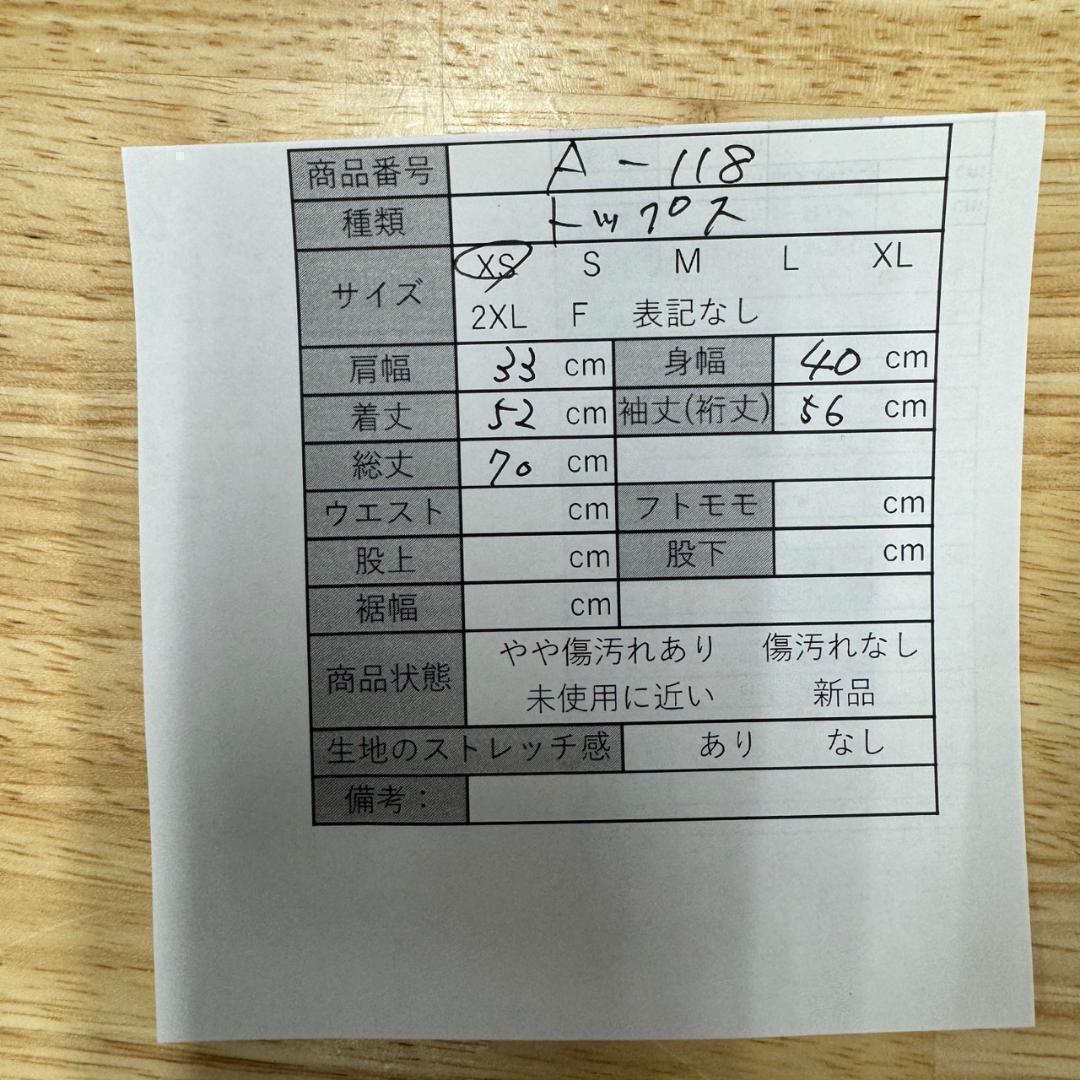 商品番号 A-118
種類 トップス
サイズ XS S M L XL
2XL F 表記なし
肩幅 33 cm 身幅 40 cm
着丈 52 cm 袖丈(裄丈) 56 cm
総丈 70 cm
ウエスト cm フトモモ cm
股上 cm 股下 cm
裾幅 cm
商品状態 やや傷汚れあり 傷汚れなし
未使用に近い 新品
生地のストレッチ感 あり なし
備考：